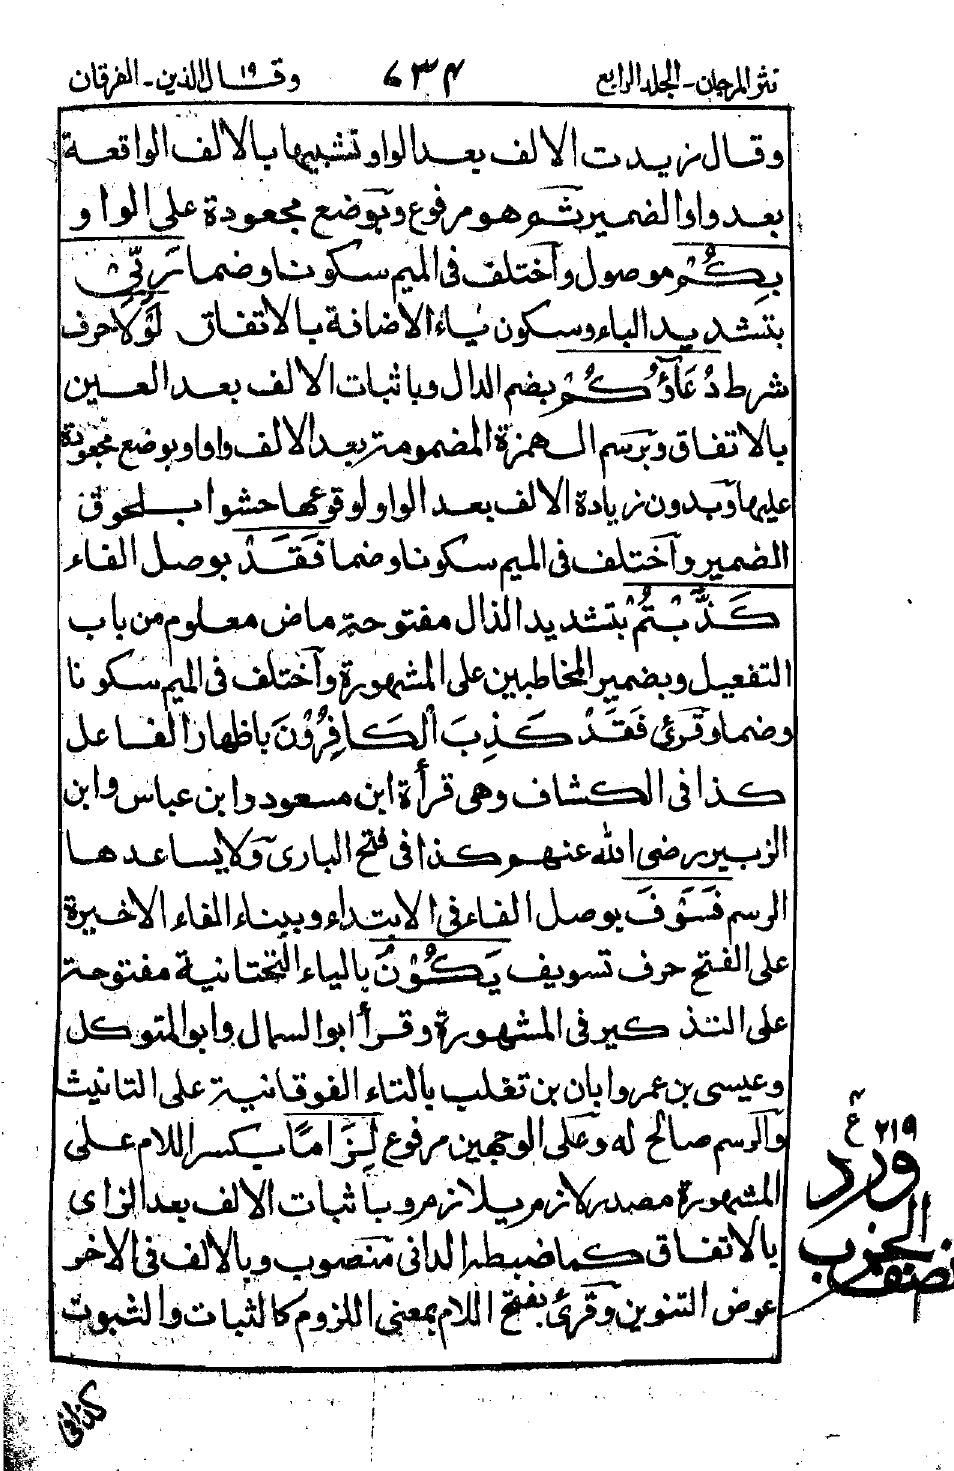 نثر المرجان - الجلد الرابع ٦٣٤ وقال الذين ١٩ - الفرقان
وقال زيدت الالف بعد الواو تشبيها بالالف الواقعة
بعد واو الضمير ثم هو مرفوع وبوضع مجعودة على الواو
بِكُمْ موصول واختلف فى الميم سكونا وضما رَبِّىْ
بتشديد الباء وسكون ياء الاضافة بالاتفاق لَوْلَا حرف
شرط دُعَآؤُكُمْ بضم الدال وباثبات الالف بعد العين
بالاتفاق وبرسم الهمزة المضمومة بعد الالف واوا وبوضع مجعودة
عليها وبدون زيادة الالف بعد الواو لوقوعها حشوا بلحوق
الضمير واختلف فى الميم سكونا وضما فَقَدْ بوصل الفاء
كَذَّبْتُمْ بتشديد الذال مفتوحة ماض معلوم من باب
التفعيل وبضمير المخاطبين على المشهورة واختلف فى الميم سكونا
وضما وقرئ فَقَدْ كَذِبَ الْكَافِرُوْنَ باظهار الفاعل
كذا فى الكشاف وهى قرأة ابن مسعود وابن عباس وابن
الزبير رضى الله عنهم كذا فى فتح البارى ولا يساعدها
الرسم فَسَوْفَ بوصل الفاء فى الابتداء وببناء الفاء الاخيرة
على الفتح حرف تسويف يَكُوْنُ بالياء التحتانية مفتوحة
على التذكير فى المشهورة وقرأ ابو السمال وابو المتوكل
وعيسى بن عمر وابان بن تغلب بالتاء الفوقانية على التانيث
والرسم صالح له وعلى الوجهين مرفوع لِزَامًا بكسر اللام على
المشهورة مصدر لازم يلازم وباثبات الالف بعد الزاى
بالاتفاق كما ضبطه الدانى منصوب وبالالف فى الاخر
عوض التنوين وقرئ بفتح اللام بمعنى اللزوم كالثبات والثبوت
٢١٩ ع ٤
ورد
نصف الحزب
كذا فى